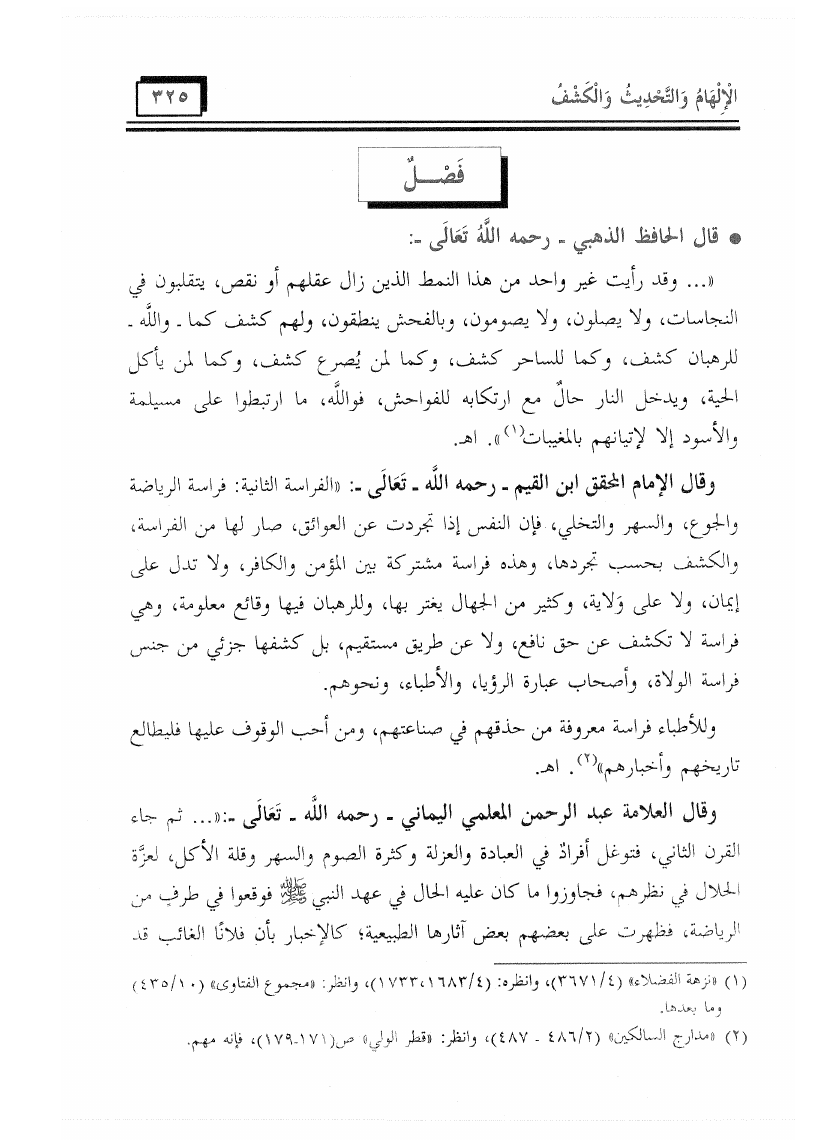 الْإِلْهَامُ وَالتَّحْدِيثُ وَالْكَشْفُ
٣٢٥
فَصْـــلٌ
● قال الحافظ الذهبي ـ رحمه اللَّهُ تَعَالَى ـ:
«... وقد رأيت غير واحد من هذا النمط الذين زال عقلهم أو نقص، يتقلبون في
النجاسات، ولا يصلون، ولا يصومون، وبالفحش ينطقون، ولهم كشف كما ـ واللَّه ـ
للرهبان كشف، وكما للساحر كشف، وكما لمن يُصرع كشف، وكما لمن يأكل
الحية، ويدخل النار حالٌ مع ارتكابه للفواحش، فواللَّه، ما ارتبطوا على مسيلمة
والأسود إلا لإتيانهم بالمغيبات(١)». اهـ.
وقال الإمام المحقق ابن القيم ـ رحمه اللَّه ـ تَعَالَى ـ: «الفراسة الثانية: فراسة الرياضة
والجوع، والسهر والتخلي، فإن النفس إذا تجردت عن العوائق، صار لها من الفراسة،
والكشف بحسب تجردها، وهذه فراسة مشتركة بين المؤمن والكافر، ولا تدل على
إيمان، ولا على وَلاية، وكثير من الجهال يغتر بها، وللرهبان فيها وقائع معلومة، وهي
فراسة لا تكشف عن حق نافع، ولا عن طريق مستقيم، بل كشفها جزئي من جنس
فراسة الولاة، وأصحاب عبارة الرؤيا، والأطباء، ونحوهم.
وللأطباء فراسة معروفة من حذقهم في صناعتهم، ومن أحب الوقوف عليها فليطالع
تاريخهم وأخبارهم»(٢). اهـ.
وقال العلامة عبد الرحمن المعلمي اليماني ـ رحمه اللَّه ـ تَعَالَى ـ:«... ثم جاء
القرن الثاني، فتوغل أفرادٌ في العبادة والعزلة وكثرة الصوم والسهر وقلة الأكل، لعزَّة
الحلال في نظرهم، فجاوزوا ما كان عليه الحال في عهد النبي ﷺ فوقعوا في طرفٍ من
الرياضة، فظهرت على بعضهم بعض آثارها الطبيعية؛ كالإخبار بأن فلانًا الغائب قد
(١) «نزهة الفضلاء» (٣٦٧١/٤)، وانظره: (١٧٣٣،١٦٨٣/٤)، وانظر: «مجموع الفتاوى» (٤٣٥/١٠)
وما بعدها.
(٢) «مدارج السالكين» (٤٨٦/٢ ـ ٤٨٧)، وانظر: «قطر الولي» ص(١٧١ـ١٧٩)، فإنه مهم.